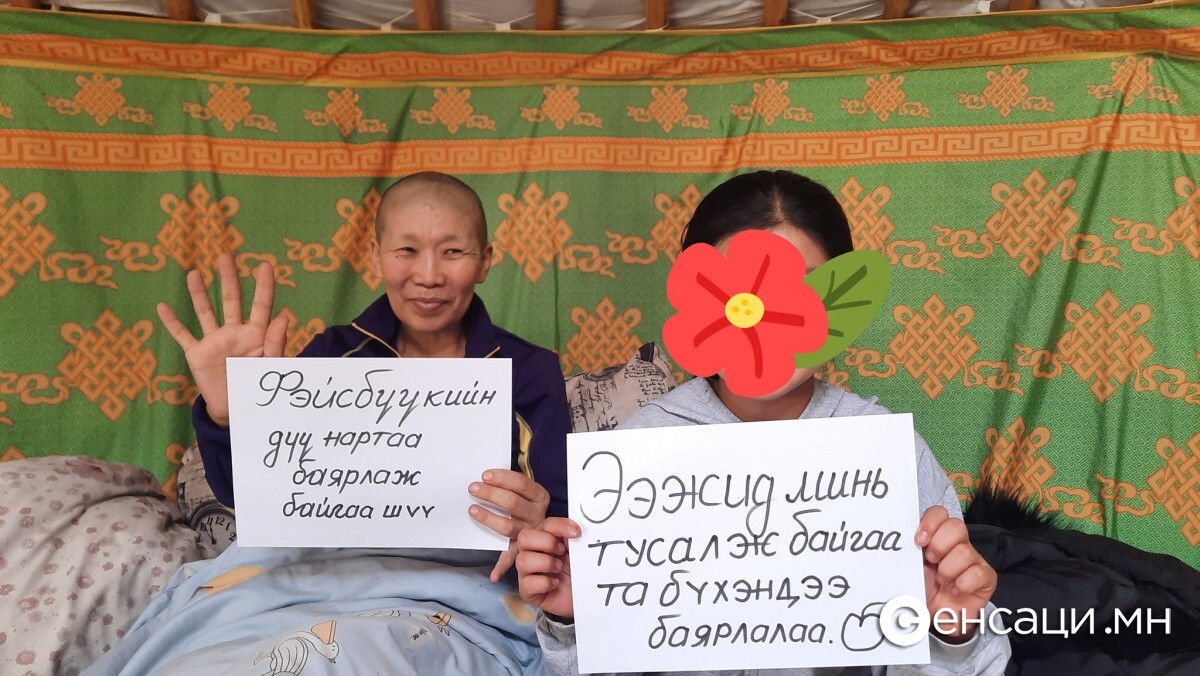 Фэйсбүүкийн
дүү нартаа
баярлаж
байгаа шүү
Ээжид минь
тусалж байгаа
та бүхэндээ
баярлалаа.
Сенсаци.мн